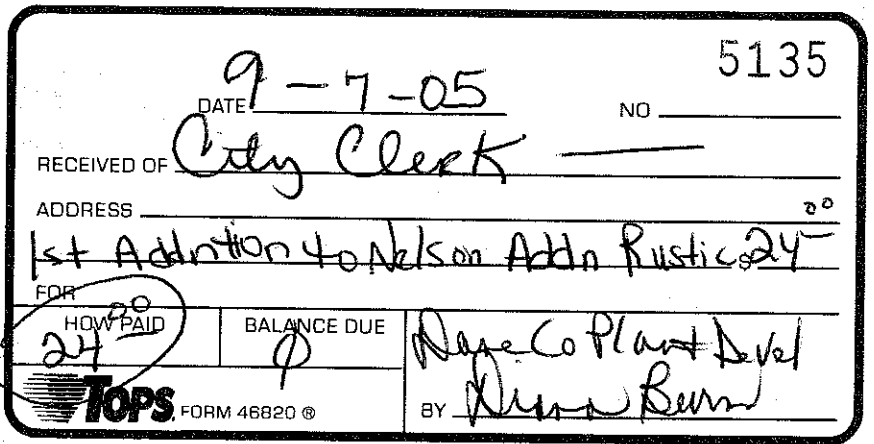 5135
DATE 9-7-05 NO
RECEIVED OF City Clerk —
ADDRESS
1st Addntion to Nelson Addn Rustic $24 00
FOR
HOW PAID 24 00 BALANCE DUE 0 Dane Co Plan + Devel
TOPS FORM 46820 ® BY